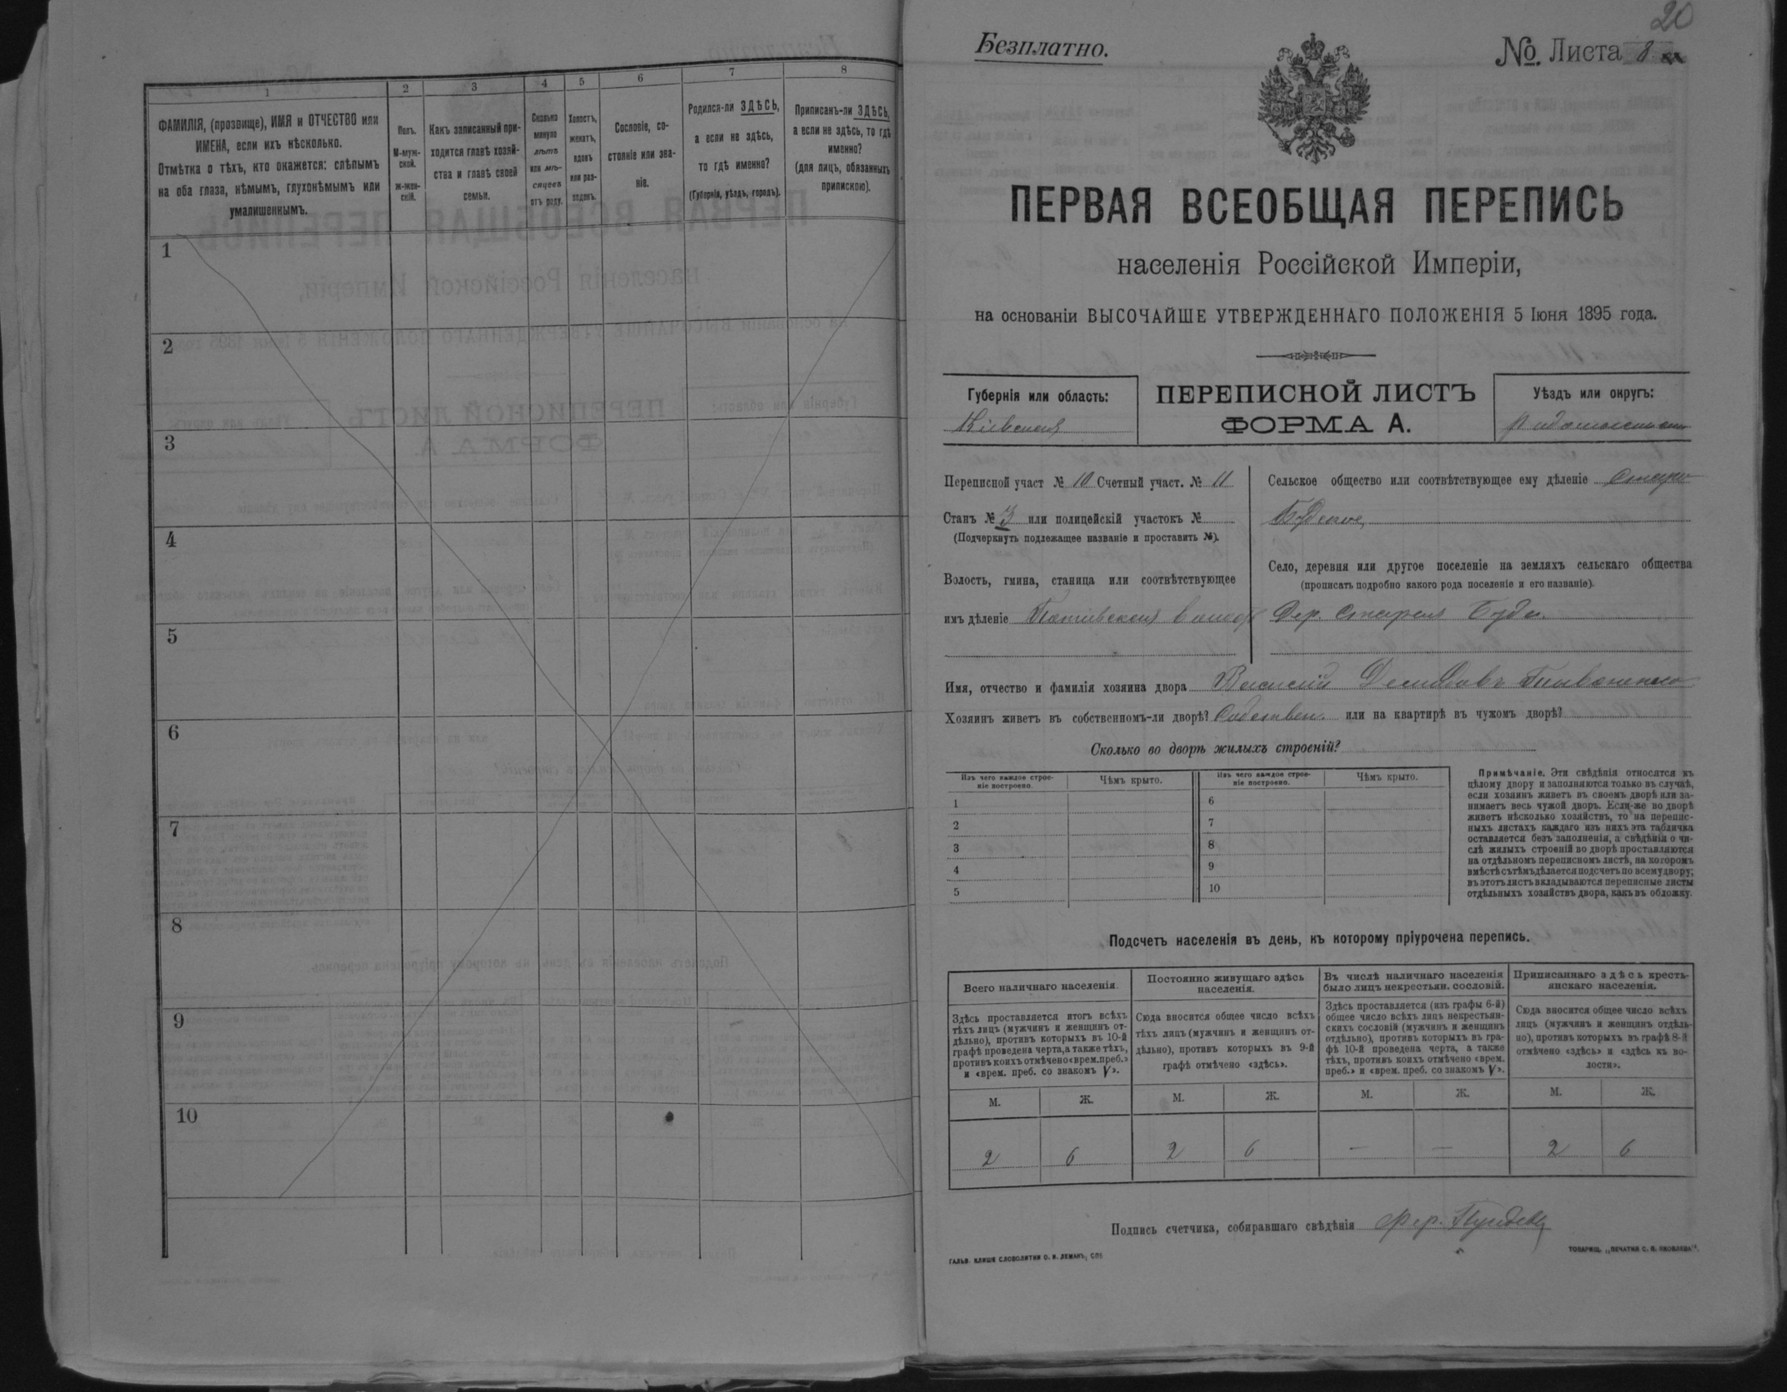 1
2
3
4
5
6
7
8
ФАМИЛІЯ, (прозвище), ИМЯ и ОТЧЕСТВО или
ИМЕНА, если ихъ нѣсколько.
Отмѣтка о тѣхъ, кто окажется: слѣпымъ
на оба глаза, нѣмымъ, глухонѣмымъ или
умалишеннымъ.
Полъ.
М-муж-
ской.
Ж-жен-
скій.
Какъ записанный при-
ходится главѣ хозяй-
ства и главѣ своей
семьи.
Сколько
минуло
лѣтъ
или мѣ-
сяцевъ
отъ роду.
Холостъ,
женатъ,
вдовъ
или раз-
веденъ.
Сословіе, со-
стояніе или зва-
ніе.
Родился-ли ЗДѢСЬ,
а если не здѣсь,
то гдѣ именно?
(Губернія, уѣздъ, городъ).
Приписанъ-ли ЗДѢСЬ,
а если не здѣсь, то гдѣ
именно?
(для лицъ, обязанныхъ
припискою).
1
2
3
4
5
6
7
8
9
10
20
Безплатно.
№ Листа 8
ПЕРВАЯ ВСЕОБЩАЯ ПЕРЕПИСЬ
населенія Россійской Имперіи,
на основаніи ВЫСОЧАЙШЕ УТВЕРЖДЕННАГО ПОЛОЖЕНІЯ 5 Іюня 1895 года.
Губернія или область:
Кіевская
ПЕРЕПИСНОЙ ЛИСТЪ
ФОРМА А.
Уѣздъ или округъ:
Переписной участ № 10 Счетный участ. № 11
Станъ № 3 или полицейскій участокъ №
(Подчеркнуть подлежащее названіе и проставить №).
Волость, гмина, станица или соотвѣтствующее
имъ дѣленіе
Сельское общество или соотвѣтствующее ему дѣленіе Старо
Будское
Село, деревня или другое поселеніе на земляхъ сельскаго общества
(прописать подробно какого рода поселеніе и его названіе).
Дер. Старая Буда.
Имя, отчество и фамилія хозяина двора Василій Демидовъ
Хозяинъ живетъ въ собственномъ-ли дворѣ? Собствен. или на квартирѣ въ чужомъ дворѣ?
Сколько во дворѣ жилыхъ строеній?
Изъ чего каждое строе-
ніе построено.
Чѣмъ крыто.
1
2
3
4
5
Изъ чего каждое строе-
ніе построено.
Чѣмъ крыто.
6
7
8
9
10
Примѣчаніе. Эти свѣдѣнія относятся къ
цѣлому двору и заполняются только въ случаѣ,
если хозяинъ живетъ въ своемъ дворѣ или за-
нимаетъ весь чужой дворъ. Если-же во дворѣ
живетъ нѣсколько хозяйствъ, то на перепис-
ныхъ листахъ каждаго изъ нихъ эта табличка
оставляется безъ заполненія, а свѣдѣнія о чи-
слѣ жилыхъ строеній во дворѣ проставляются
на отдѣльномъ переписномъ листѣ, на которомъ
вмѣстѣ съ тѣмъ дѣлается подсчетъ по всему двору;
въ этотъ листъ вкладываются переписные листы
отдѣльныхъ хозяйствъ двора, какъ въ обложку.
Подсчетъ населенія въ день, къ которому пріурочена перепись.
Всего наличнаго населенія.
Здѣсь проставляется итогъ всѣхъ
тѣхъ лицъ (мужчинъ и женщинъ от-
дѣльно), противъ которыхъ въ 10-й
графѣ проведена черта, а также тѣхъ,
противъ коихъ отмѣчено «врем. преб.»
и «врем. преб. со знакомъ V».
Постоянно живущаго здѣсь
населенія.
Сюда вносится общее число всѣхъ
тѣхъ лицъ (мужчинъ и женщинъ от-
дѣльно), противъ которыхъ въ 9-й
графѣ отмѣчено «здѣсь».
Въ числѣ наличнаго населенія
было лицъ некрестьян. сословій.
Здѣсь проставляется (изъ графы 6-й)
общее число всѣхъ лицъ некрестьян-
скихъ сословій (мужчинъ и женщинъ
отдѣльно), противъ которыхъ въ гра-
фѣ 10-й проведена черта, а также
тѣхъ, противъ коихъ отмѣчено «врем.
преб.» и «врем. преб. со знакомъ V».
Приписаннаго здѣсь кресть-
янскаго населенія.
Сюда вносится общее число всѣхъ
лицъ (мужчинъ и женщинъ отдѣль-
но), противъ которыхъ въ графѣ 8-й
отмѣчено «здѣсь» и «здѣсь къ во-
лости».
М. Ж. М. Ж. М. Ж. М. Ж.
2 6 2 6 — — 2 6
Подпись счетчика, собиравшаго свѣдѣнія
ГАЛЬВ. КЛИШЕ СЛОВОЛИТНИ О. И. ЛЕМАНЪ, СПБ
ТОВАРИЩ. „ПЕЧАТНЯ С. П. ЯКОВЛЕВА".